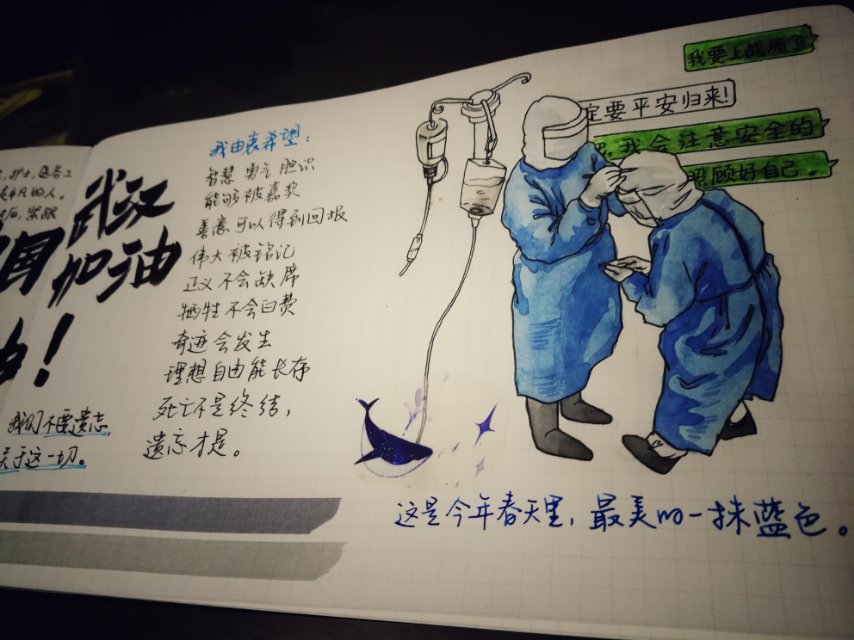 护士,医务工
凡的人。
武汉
加油
国
!
我们不要遗忘
关于这一切。
我由衷希望:
智慧 勇气 胆识
能够被嘉奖
善意可以得到回报
伟大被铭记
正义不会缺席
牺牲不会白费
奇迹会发生
理想自由能长存
死亡不是终结,
遗忘才是。
我要上战场了
定要平安归来!
我会注意安全的
照顾好自己。
这是今年春天里,最美的一抹蓝色。